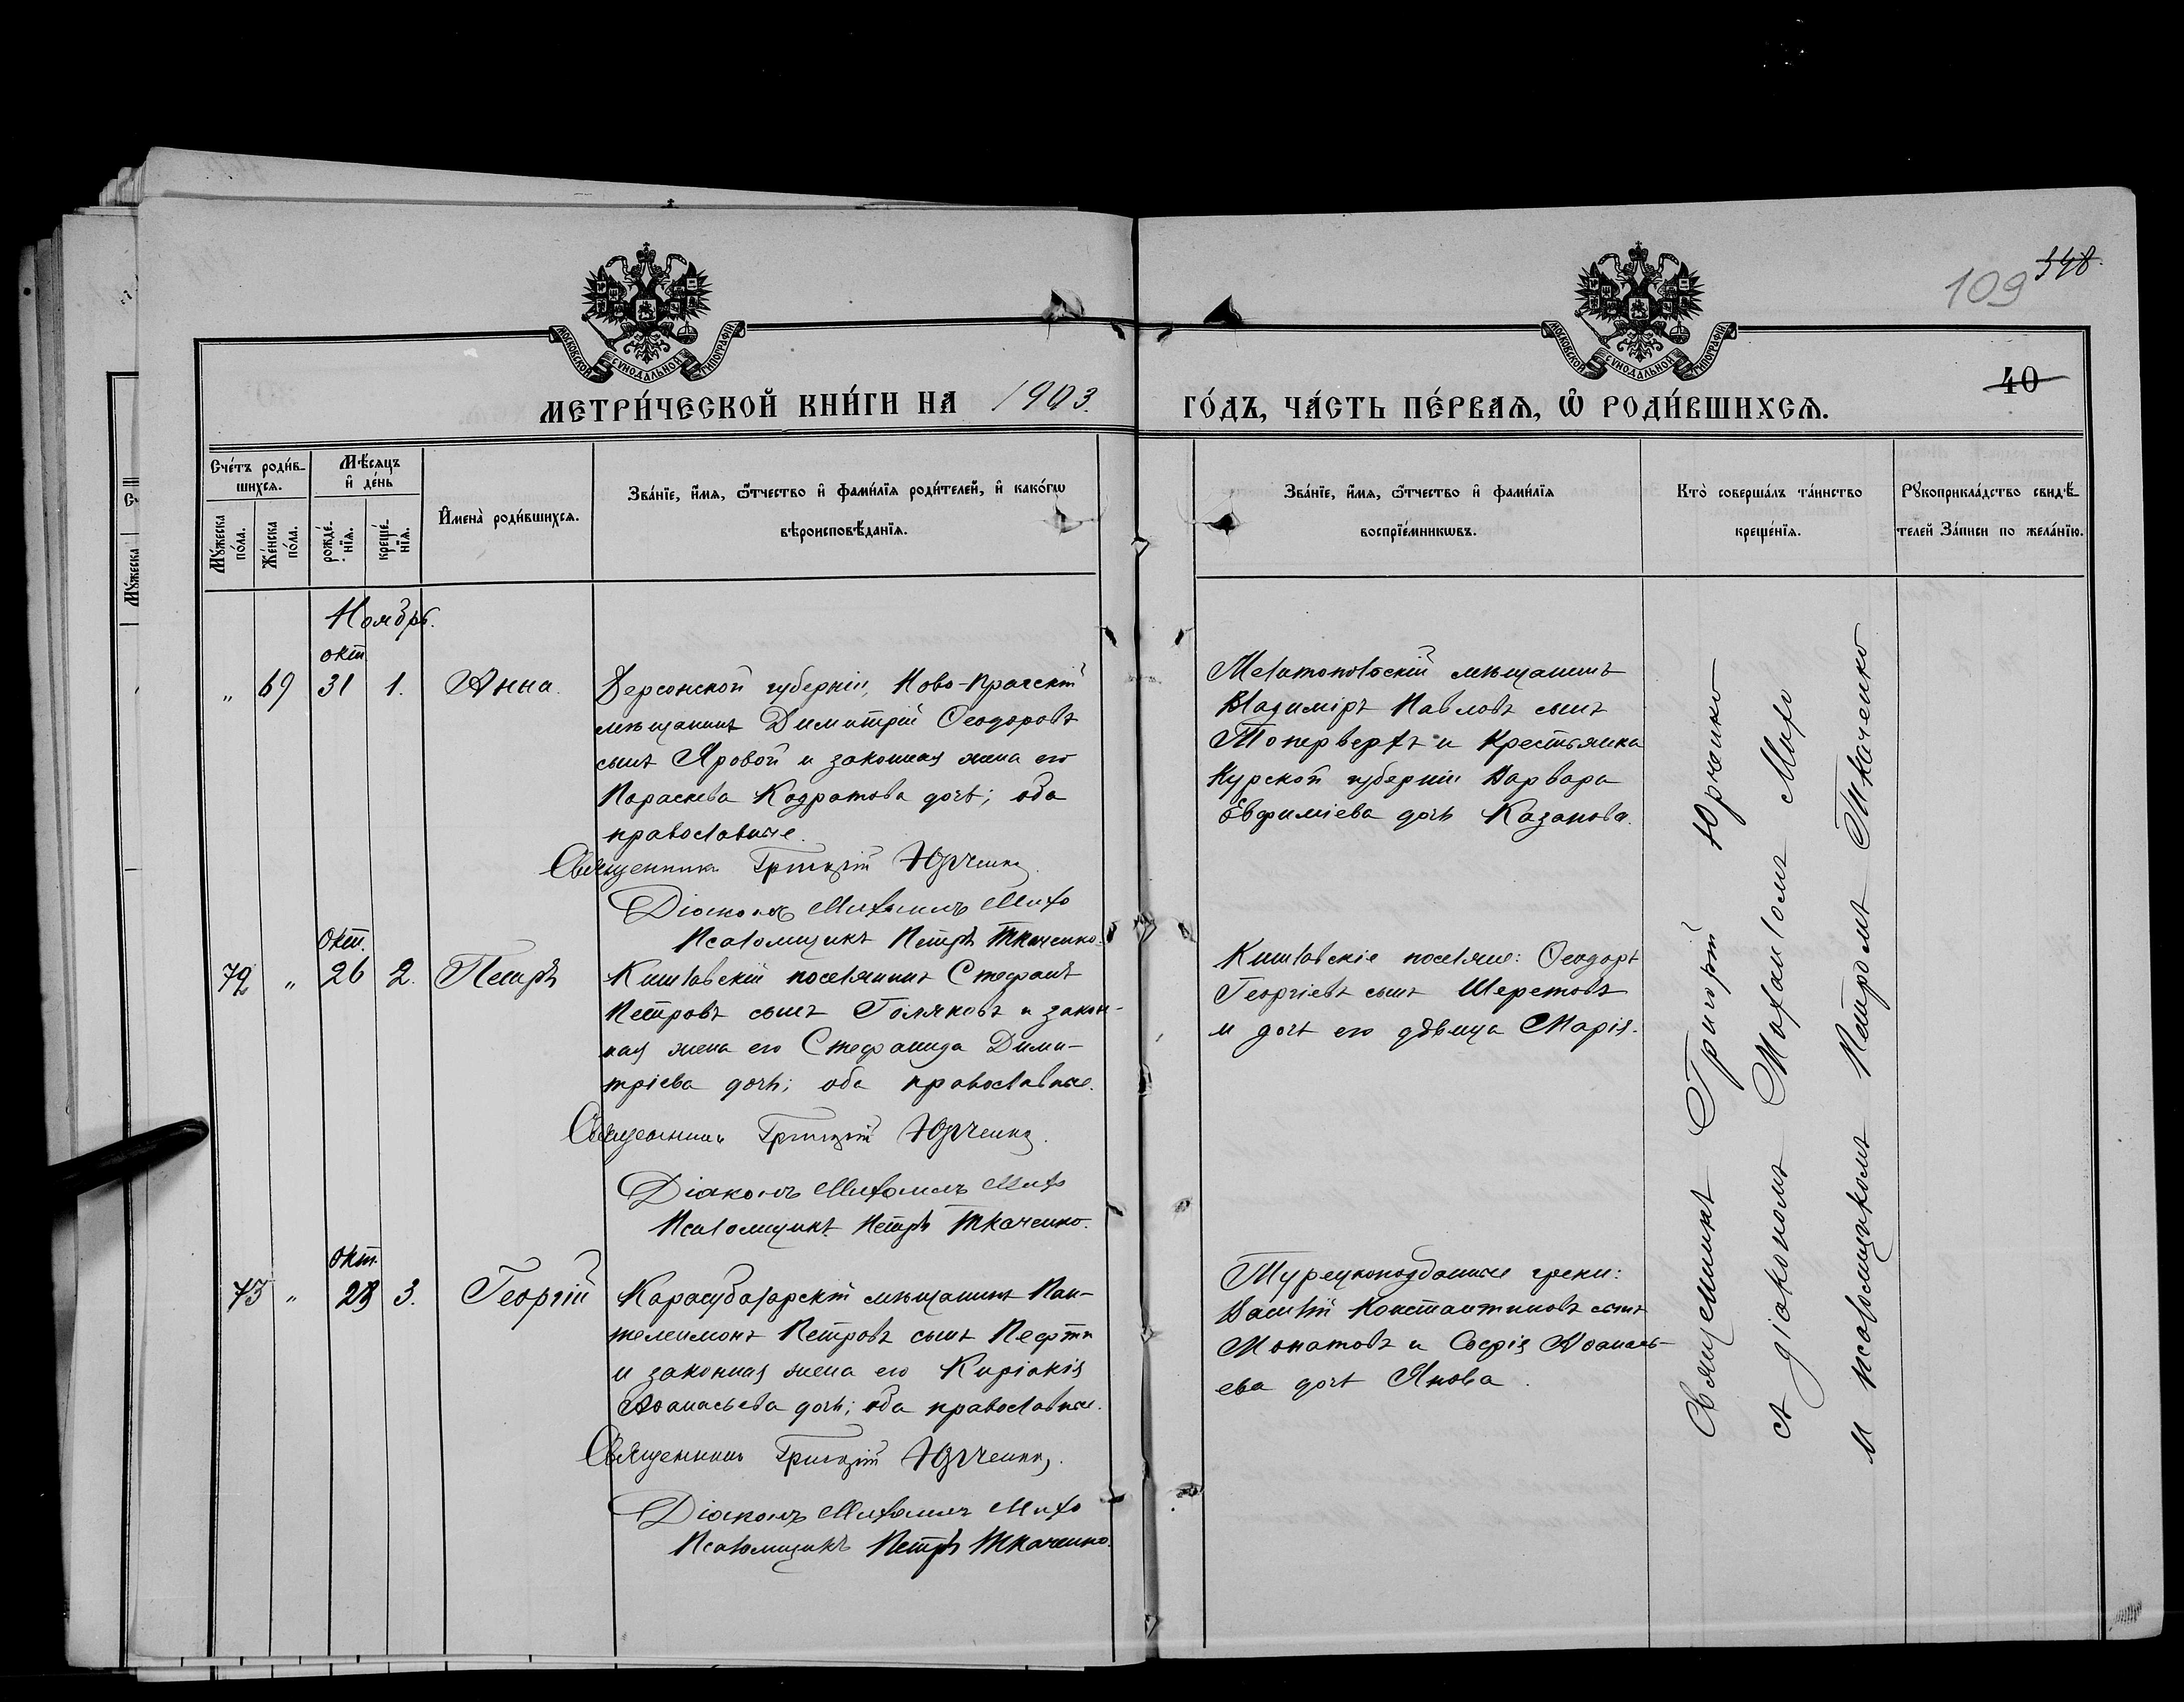 109 348
МОСКОВСКОЙ СѴНОДАЛЬНОЙ ТИПОГРАФІИ
МОСКОВСКОЙ СѴНОДАЛЬНОЙ ТИПОГРАФІИ
40
МЕТРИ́ЧЕСКОЙ КНИ́ГИ НА 1903. ГО́ДЪ, ЧА́СТЬ ПЕ́РВАѦ, Ѽ РОДИ́ВШИХСѦ.
Сче́тъ роди́в-
шихсѧ.
Мꙋ́жеска
по́ла.
Же́нска
по́ла.
Мѣ́сѧцъ
и҆ де́нь
рожде́-
нїѧ.
креще́-
нїѧ.
И҆мена̀ роди́вшихсѧ.
Зва́нїе, и҆́мѧ, ѻ҆́тчество и҆ фами́лїѧ роди́телей, и҆ како́гѡ
вѣроисповѣ́данїѧ.
Зва́нїе, и҆́мѧ, ѻ҆́тчество и҆ фами́лїѧ
воспрїе́мникѡвъ.
Кто̀ соверша́лъ та́инство
креще́нїѧ.
Рꙋкоприкла́дство свидѣ́-
телей за́писи по жела́нїю.
Ноябрь.
окт.
„ 69 31 1. Анна.
Херсонской губерніи, Ново-Прагскій
мѣщанинъ Димитрій Ѳеодоровъ
сынъ Яровой и законная жена его
Параскева Кодратова дочь; оба
православные.
Священникъ Григорій Юрченко.
Діаконъ Михаилъ Михо
Псаломщикъ Петръ Ткаченко.
Мелитопольскій мѣщанинъ
Владиміръ Павловъ сынъ
Топервергъ и крестьянка
Курской губерніи Варвара
Евфиміева дочь Казакова.
Окт.
72 „ 26 2. Петръ
Кишлавскій поселянинъ Стефанъ
Петровъ сынъ Голяковъ и закон-
ная жена его Стефанида Дими-
тріева дочь; оба православные.
Священникъ Григорій Юрченко.
Діаконъ Михаилъ Михо
Псаломщикъ Петръ Ткаченко.
Кишлавскіе поселяне: Ѳеодоръ
Георгіевъ сынъ Шереметовъ
и дочь его дѣвица Марія.
окт.
73 „ 28 3. Георгій
Карасубазарскій мѣщанинъ Пан-
телеимонъ Петровъ сынъ Пефти
и законная жена его Киріакія
Аѳанасьева дочь; оба православные.
Священникъ Григорій Юрченко.
Діаконъ Михаилъ Михо
Псаломщикъ Петръ Ткаченко.
Турецкоподданные греки:
Василій Константиновъ сынъ
Монатовъ и Софія Аѳанась-
ева дочь Янова.
Священникъ Григорій Юрченко
съ діакономъ Михаиломъ Михо
и псаломщикомъ Петромъ Ткаченко